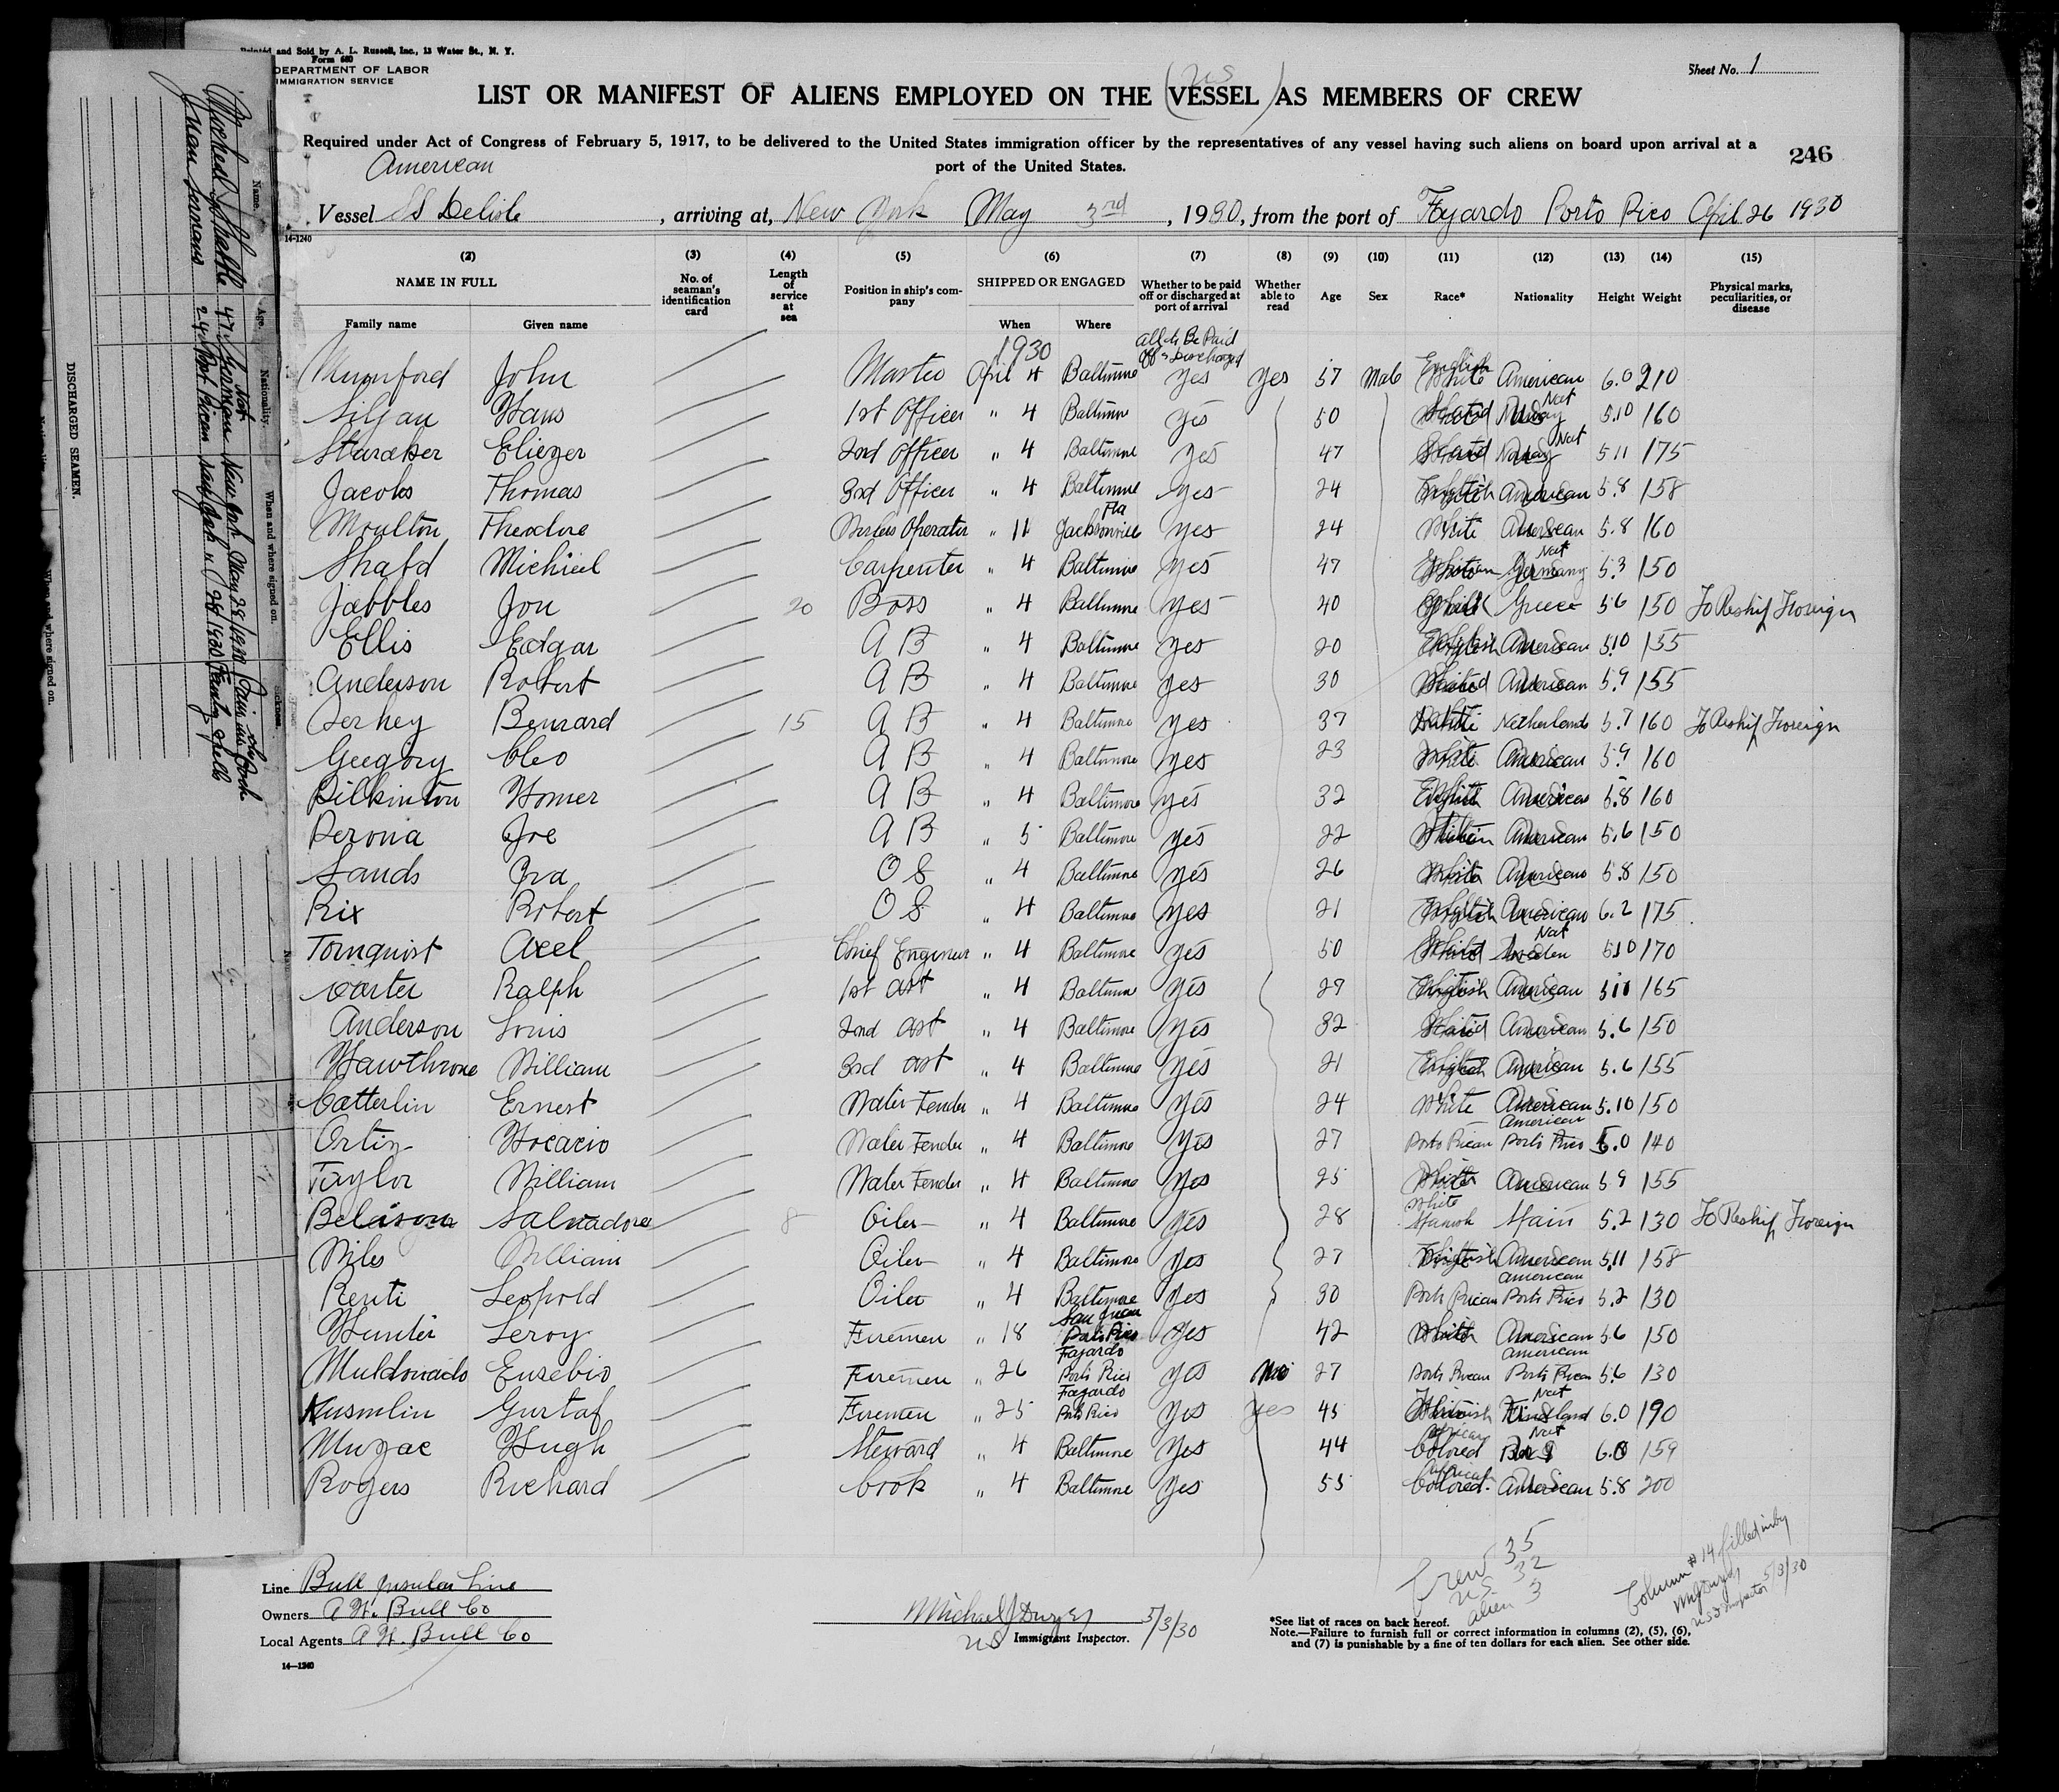 Printed and Sold by A. L. Russell, Inc., 13 Water St., N. Y.
Form 680
DEPARTMENT OF LABOR
IMMIGRATION SERVICE
Sheet No. 1
US
LIST OR MANIFEST OF ALIENS EMPLOYED ON THE (VESSEL) AS MEMBERS OF CREW
Required under Act of Congress of February 5, 1917, to be delivered to the United States immigration officer by the representatives of any vessel having such aliens on board upon arrival at a
port of the United States.
246
American
Vessel SS Delisle, arriving at, New York May 3rd, 1930, from the port of Fajardo Porto Rico April 26 1930
14-1240
(2) (3) (4) (5) (6) (7) (8) (9) (10) (11) (12) (13) (14) (15)
NAME IN FULL No. of seaman's identification card Length of service at sea Position in ship's company SHIPPED OR ENGAGED Whether to be paid off or discharged at port of arrival Whether able to read Age Sex Race* Nationality Height Weight Physical marks, peculiarities, or disease
Family name Given name When Where
1930 All to Be Paid Off & Discharged
Mumford John Master April 4 Baltimore Yes Yes 57 Male English White American 6.0 210
Siljan Hans 1st Officer " 4 Baltimore Yes 50 Nat 5.10 160
Staraker Eliezer 2nd Officer " 4 Baltimore Yes 47 Norway Nat 5 11 175
Jacobs Thomas 3rd Officer " 4 Baltimore Yes 24 English American 5.8 158
Moulton Theodore Wireless Operator " 11 Jacksonville Fla Yes 24 White American 5.8 160
Shafd Michieel Carpenter " 4 Baltimore Yes 47 Germany Nat 5.3 150
Jabbles Jon 20 Boss " 4 Baltimore Yes 40 Greece 5 6 150 To Reship Foreign
Ellis Edgar A B " 4 Baltimore Yes 20 English American 5.10 155
Anderson Robert A B " 4 Baltimore Yes 30 American 5.9 155
Gerhey Benrard 15 A B " 4 Baltimore Yes 37 White Netherlands 5.7 160 To Reship Foreign
Gregory Cleo A B " 4 Baltimore Yes 23 White American 5.9 160
Pilkinton Homer A B " 4 Baltimore Yes 32 American 5.8 160
Perona Joe A B " 5 Baltimore Yes 22 American 5.6 150
Sands Ira O S " 4 Baltimore Yes 26 White American 5.8 150
Rix Robert O S " 4 Baltimore Yes 21 English American 6.2 175
Tornquist Axel Chief Engineer " 4 Baltimore Yes 50 Sweden Nat 5.10 170
Carter Ralph 1st Ast " 4 Baltimore Yes 29 English American 5 11 165
Anderson Louis 2nd Ast " 4 Baltimore Yes 32 American 5.6 150
Hawthrone William 3rd Ast " 4 Baltimore Yes 21 English American 5.6 155
Catterlin Ernest Water Tender " 4 Baltimore Yes 24 White American 5.10 150
Ortiz Horacio Water Tender " 4 Baltimore Yes 27 Porto Rican American Porto Rico 5.0 140
Taylor William Water Tender " 4 Baltimore Yes 25 White American 5 9 155
Salvadore 8 Oiler " 4 Baltimore Yes 28 White Spanish Spain 5.2 130 To Reship Foreign
Niles William Oiler " 4 Baltimore Yes 27 English American 5.11 158
Renti Leopold Oiler " 4 Baltimore Yes 30 Porto Rican American Porto Rico 5.2 130
Hunter Leroy Firemen " 18 San Juan Porto Rico Yes 42 White American 5.6 150
Muldonado Eusebio Firemen " 26 Fajardo Porto Rico Yes No 27 Porto Rican American Porto Rican 5.6 130
Kusmlin Gustaf Firemen " 25 Fajardo Porto Rico Yes Yes 45 Finnish Finland Nat 6.0 190
Muzac Hugh Steward " 4 Baltimore Yes 44 African Colored Nat 6.0 159
Rogers Richard Cook " 4 Baltimore Yes 55 African Colored American 5.8 200
Crew 35
US 32
alien 3
Column # 14 filled in by
US Inspector 5/3/30
Line Bull Insular Line
Owners A H. Bull Co
Local Agents A H. Bull Co
14—1240
Michael J Dwyer 5/3/30
US Immigrant Inspector.
*See list of races on back hereof.
Note.—Failure to furnish full or correct information in columns (2), (5), (6),
and (7) is punishable by a fine of ten dollars for each alien. See other side.
DISCHARGED SEAMEN.
Name. Age. Nationality. When and where signed on. Sickness.
47 German New York
Juan Germans 24 Port Rican New York Fainty spells